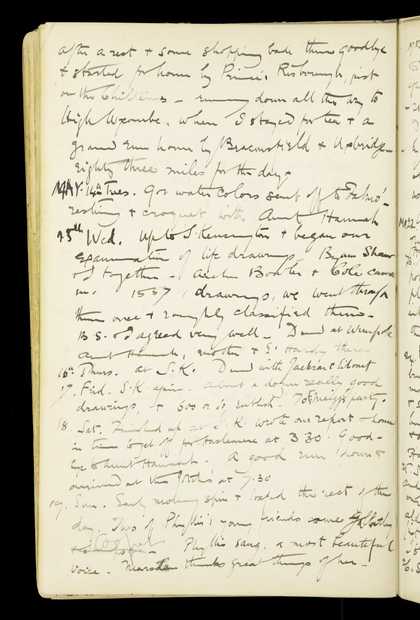 after a rest & some shopping bade them goodbye
& started for home by Princes Risborough, just
on the Chilterns – running down all the way to
High Wycombe, where I stayed for tea & a
grand run home by Beaconsfield & Uxbridge –
eighty three miles for the day
MAY. 14th Tues. Got water colors sent off to
resting & croquet with Aunt Hannah
15th Wed. Up to S. Kensington & began our
examination of life drawings. Byam Shaw
& I together – & Cole came
in. 1537 drawings, we went through
them once & roughly classified them –
B S. & I agreed very well – Dined at
Aunt Hannah, & E. Hardy there
16th Thurs. at S.K. Dined with
17. Frid. S.K. again – about a dozen really good
drawings, & 500 or so rubbish. party.
18. Sat. Finished up at S.K. wrote our report – home
in time to get off for at 3.30 Good-
bye to Aunt Hannah. A good run down &
arrived at the at 7.30
19. Sun. Early morning spin & the rest of the
day. Two of Phyllis's young friends came
Phyllis sang, a most beautiful
voice – thinks great things of her –